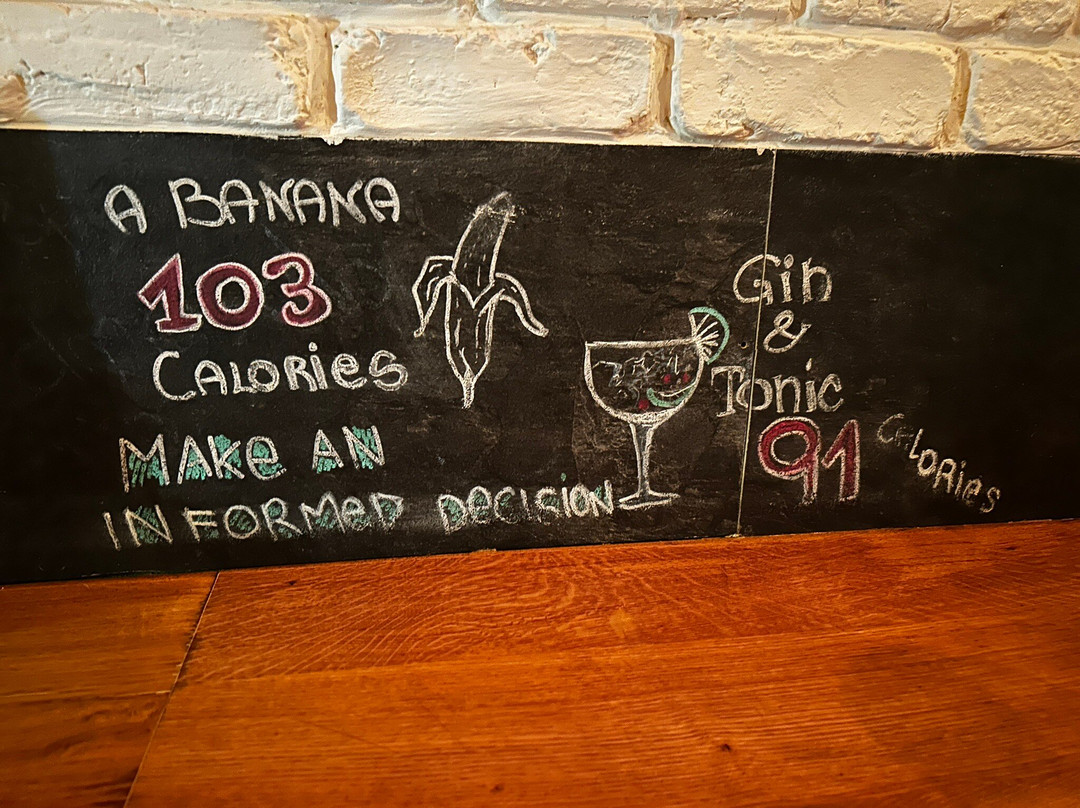 A BANANA
103
CALORIeS
MAKe AN
INFORMeD DeCISION
Gin
&
Tonic
91
CALORieS